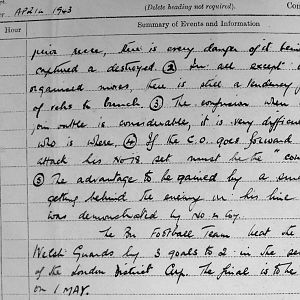 (Delete heading not required).
APRIL 1943
Hour
Summary of Events and Information
there is every danger of it bein
captured & destroyed. (2) In all except
organised moves, there is still a tendency f
of vehs to bunch. (3) The confusion when
is considerable, it is very difficu
who is where. (4) If the C.O. goes forward
attack his No 18 set must be the "con
(5) The advantage to be gained by a sma
getting behind the enemy in his line
was demonstrated by No. Coy.
The Bn Football Team beat the
Welsh Guards by 3 goals to 2 in the se
of the London District Cup. The final is to be
on 1 MAY.